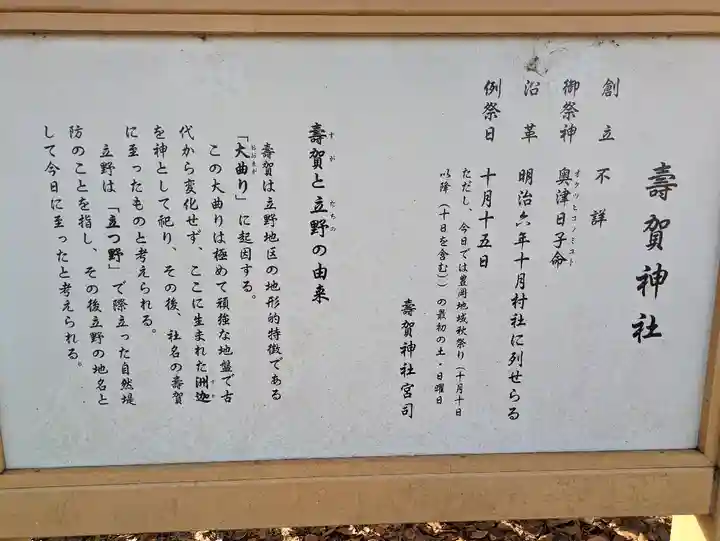 壽賀神社
創立 不詳
御祭神 奥津日子命
オクツヒコノミコト
沿革 明治六年十月村社に列せらる
例祭日 十月十五日
ただし、今日では豊岡地域秋祭り(十月十日
以降(十日を含む))の最初の土・日曜日
壽賀神社宮司
壽賀と立野の由来
すが たちの
壽賀は立野地区の地形的特徴である
「大曲り」に起因する。
おおまが
この大曲りは極めて頑強な地盤で古
代から変化せず、ここに生まれた洲処
を神として祀り、その後、社名の壽賀
に至ったものと考えられる。
立野は「立つ野」で際立った自然堤
防のことを指し、その後立野の地名と
して今日に至ったと考えられる。